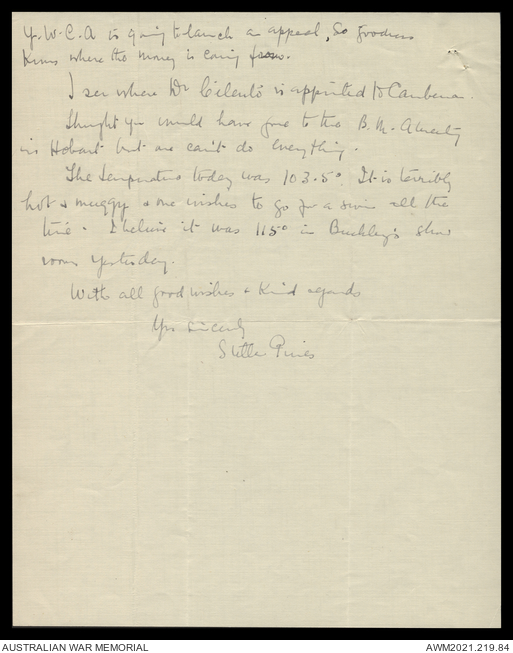 Y.W.C.A is going to launch an appeal, So goodness
knows where the money is coming from.
I see where Dr Cilento is appointed to Canberra.
Thought you would have gone to the B.M.A meeting
in Hobart but one can't do everything.
The temperature today was 103.5°. It is terribly
hot & muggy & one wishes to go for a swim all the
time. I believe it was 115° in Buckley's show
room yesterday.
With all good wishes & kind regards
Yrs sincerely
Stella Pines
AUSTRALIAN WAR MEMORIAL
AWM2021.219.84